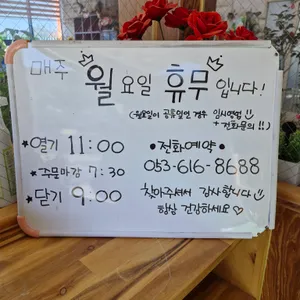 매주 월요일 휴무 입니다!
(월요일이 공휴일인 경우 임시영업
+ 전화문의!!)
*열기 11:00
*주문마감 7:30
*닫기 9:00
•전화예약•
053-616-8688
찾아주셔서 감사합니다
항상 건강하세요♡